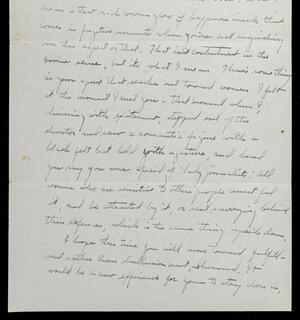 mean a that rich warm glow of happiness inside that
comes in fugitive moments when you're not anguishing
over this aspect or that. That isn't contentment in the
bovine sense, but it's what I mean. There's something
in your spirit that reaches out toward women. I felt
it the moment I met you. That moment when I,
shivering with excitement, stepped out of the
elevator and saw a romantic figure with a
black felt hat held with a gesture, and heard
you say you were afraid of "lady journalists." All
women who are sensitive to other people must feel
it, and be attracted by it, or rest, scurrying behind
their defenses, which is the same thing upside down.
I hope this time you will move toward fulfill-
ment rather than disillusionment, Sherwood. It
would be a new experience for you to stay close in,